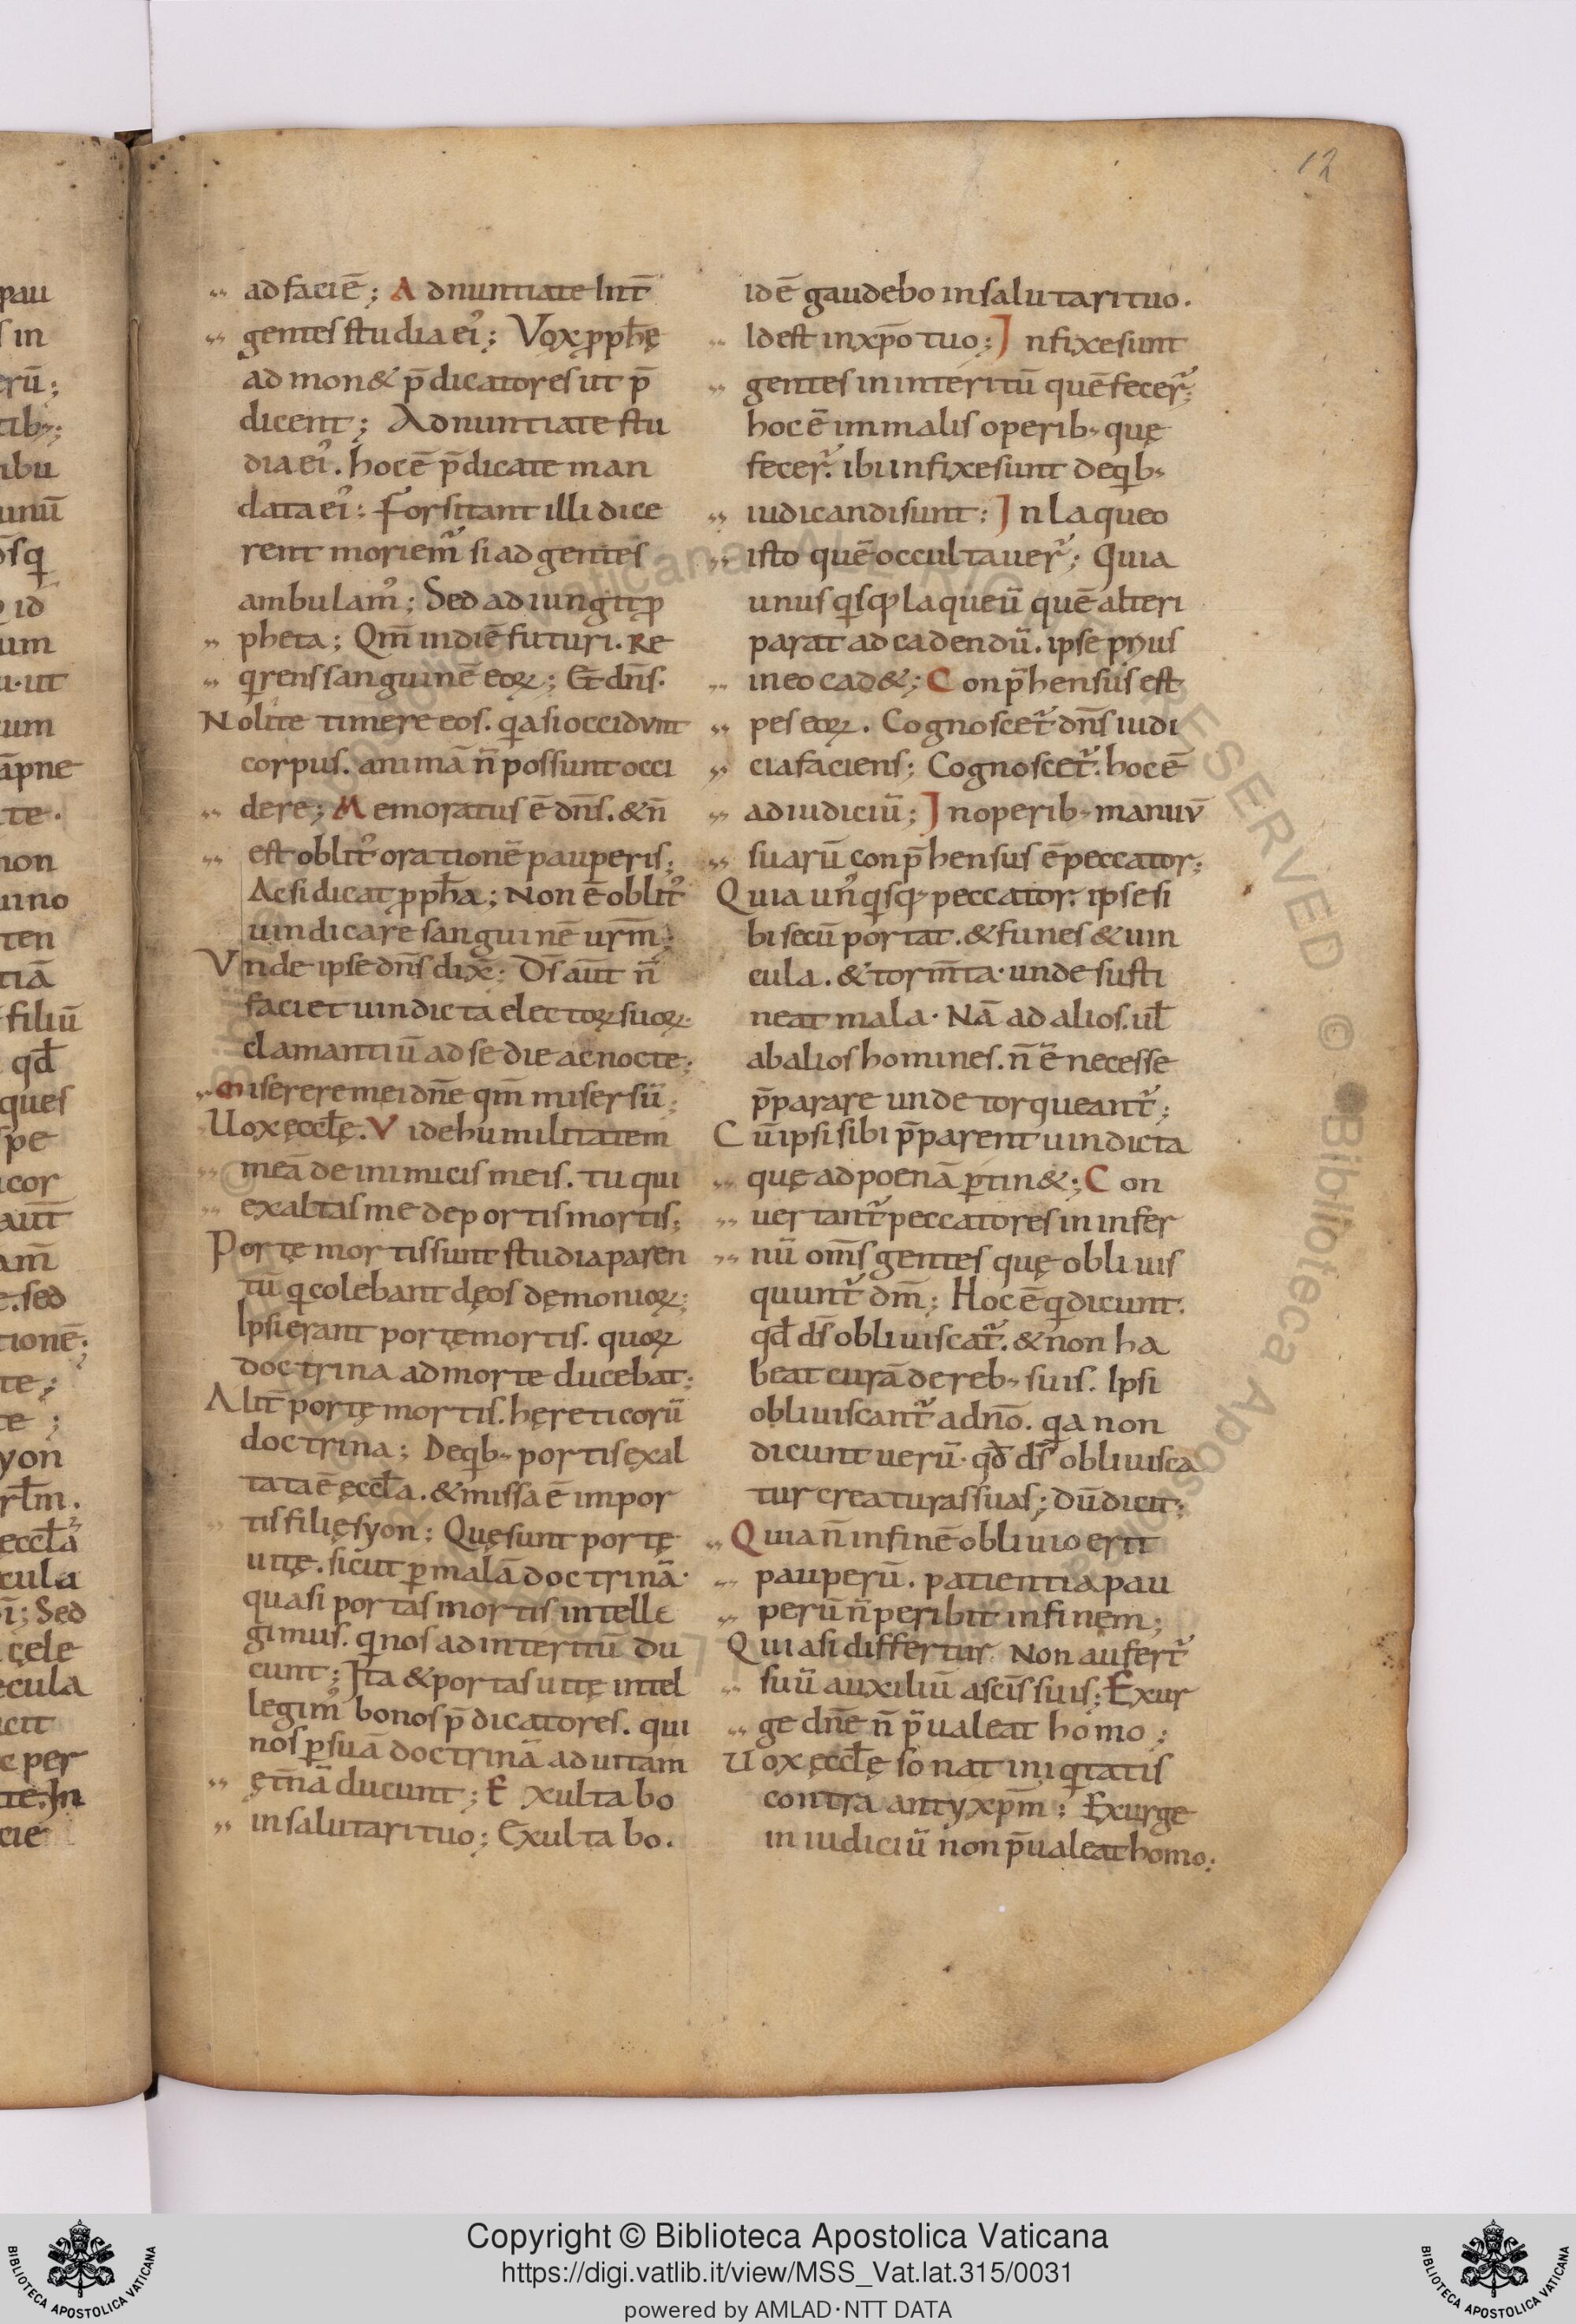 12
ad faciē; Adnuntiate Int̄
gentes studia ei᾿; Vox ꝓph̄ę
admon& p̄dicatores ut p̄
dicent; Adnuntiate stu
dia ei᾿. hoc ē p̄dicate man
data ei᾿: Forsitant illi dice
rent moriem᾿ si ad gentes
ambulam᾿; Sed adiungit ꝓ
pheta; Qm̄ indiē futuri. Re
q̇rens sanguinē eoꝝ; Et dn̄s.
Nolite timere eos. q̇a si occidunt
corpus. animā n̄ possunt occi
dere; Memoratus ē dn̄s. & n̄
est oblit᾿ orationē pauperis;
Ac si dicat ꝓph̄a; Non ē oblit᾿
uindicare sanguinē urm̄;
Vnde ipse dn̄s dix̄; Ds̄ aut̄ n̄
faciet uindicta electoꝝ suoꝝ.
clamantiū ad se die ac nocte;
Miserere mei dn̄e qm̄ miser sū;
Uox ęccl̄ę. Vide humilitatem
meā de inimicis meis. tu qui
exaltas me de portis mortis;
Portę mortis sunt studia paren
tū q̇ colebant dęos dęmonioꝝ;
Ipsi erant portę mortis. quoꝝ
doctrina ad morte ducebat;
Alit̄ portę mortis. hęreticorū
doctrina; Deq̇b; portis exal
tata ē ęccl̄a. & missa ē impor
tis filię syon; Quę sunt portę
uitę. sicut ꝑ malā doctrinā.
quasi portas mortis intelle
gimus. q̇ nos ad interitū du
cunt; Ita & portas uitę intel
legim᾿ bonos p̄dicatores. qui
nos ꝑ suā doctrinā ad uitam
ęt̄nā ducunt; Exultabo
in salutari tuo; Exultabo.
id ē gaudebo in salutari tuo.
Id est in xp̄o tuo; Infixe sunt
gentes in interitū quē fecer᾿;
hoc ē im malis operib; quę
fecer᾿. ibi infixe sunt deq̇b;
iudicandi sunt; In laqueo
isto quē occultauer᾿; Quia
unus q̇sq; laqueū quē alteri
parat ad cadendū. ipse prius
in eo cad&; Conp̄hensus est
pes eoꝝ. Cognoscet᾿ dn̄s iudi
cia faciens; Cognoscet᾿. hoc ē
ad iudiciū; In operib; manuū
suarū conp̄hensus ē peccator;
Quia un᾿ q̇sq; peccator. ipse si
bi secū portat. & funes & uin
cula. & torm̄ta. unde susti
neat mala. Nā ad alios. ul̄
ab alios homines. n̄ ē necesse
p̄parare unde torqueant᾿;
Cū ipsi sibi p̄parent uindicta
quę ad poenā ꝑtin&; Con
uertant᾿ peccatores in infer
nū om̄s gentes quę obliuis
quunt᾿ dm̄; Hoc ē q̇ dicunt.
qđ ds̄ obliuiscat᾿. & non ha
beat curā de reb; suis. Ipsi
obliuiscant᾿ a dn̄o. q̇a non
dicunt uerū. qđ ds̄ obliuisca
tur creaturas suas; dū dicit;
Quia n̄ in finē obliuio erit
pauperū. patientia pau
perū n̄ peribit in finem;
Quia si differtur. Non aufert᾿
suū auxiliū a scīs suis; Exur
ge dn̄e n̄ p̄ualeat homo;
Uox ęccl̄ę sonat iniq̇tatis
contra antyxp̄m; Exurge
in iudiciū non p̄ualeat homo;
Copyright © Biblioteca Apostolica Vaticana
https://digi.vatlib.it/view/MSS_Vat.lat.315/0031
powered by AMLAD·NTT DATA
BIBLIOTECA APOSTOLICA VATICANA
BIBLIOTECA APOSTOLICA VATICANA